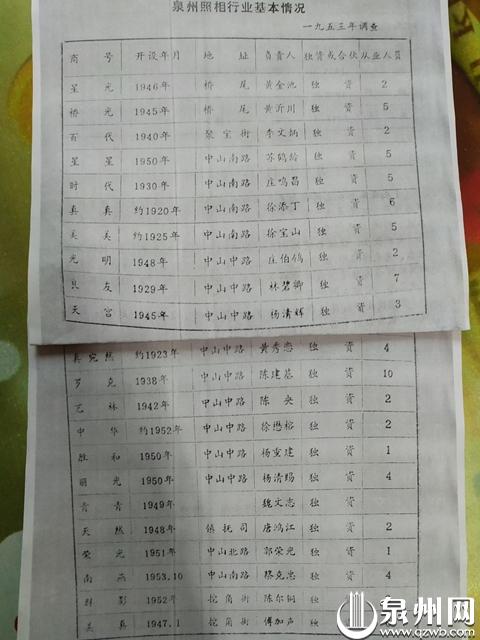 泉州照相行业基本情况
一九五三年调查
商号 开设年月 地址 负责人 独资或合伙 从业人员
星光 1946年 桥尾 黄金池 独资 2
桥光 1945年 桥尾 黄沂川 独资 5
百代 1940年 聚宝街 李文炳 独资 2
星星 1950年 中山南路 苏鹤龄 独资 5
时代 1930年 中山南路 庄鸣昌 独资 5
真真 约1920年 中山南路 徐添丁 独资 6
美美 约1925年 中山南路 徐宝山 独资 5
光明 1948年 中山中路 庄伯 独资 2
良友 1929年 中山中路 林碧卿 独资 7
天宫 1945年 中山中路 杨清辉 独资 3
真宛然 约1923年 中山中路 黄秀恋 独资 4
罗克 1938年 中山中路 陈建基 独资 10
艺林 1942年 中山中路 陈央 独资 2
中华 约1952年 中山中路 徐懋榕 独资 2
胜和 1950年 中山中路 杨重建 独资 1
丽光 1950年 中山中路 杨清赐 独资 4
青青 1949年 魏文志 独资
天然 1948年 镇抚司 唐鸿江 独资 2
荣光 1951年 中山北路 郭荣光 独资 1
南燕 1953.10 中山南路 蔡克忠 独资 4
群影 1952年 挖角街 陈尔钢 独资
美真 1947.1 挖角街 傅加声 独
泉州网
www.qzwb.com